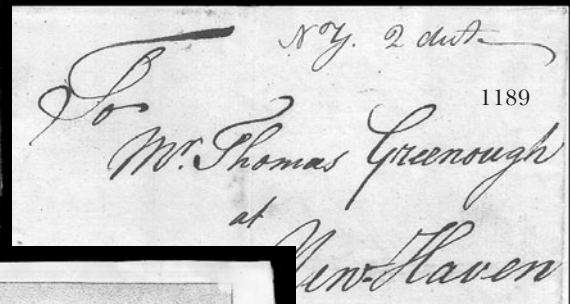 NY. 2 dwt
1189
To
Mr. Thomas Greenough
at
New-Haven